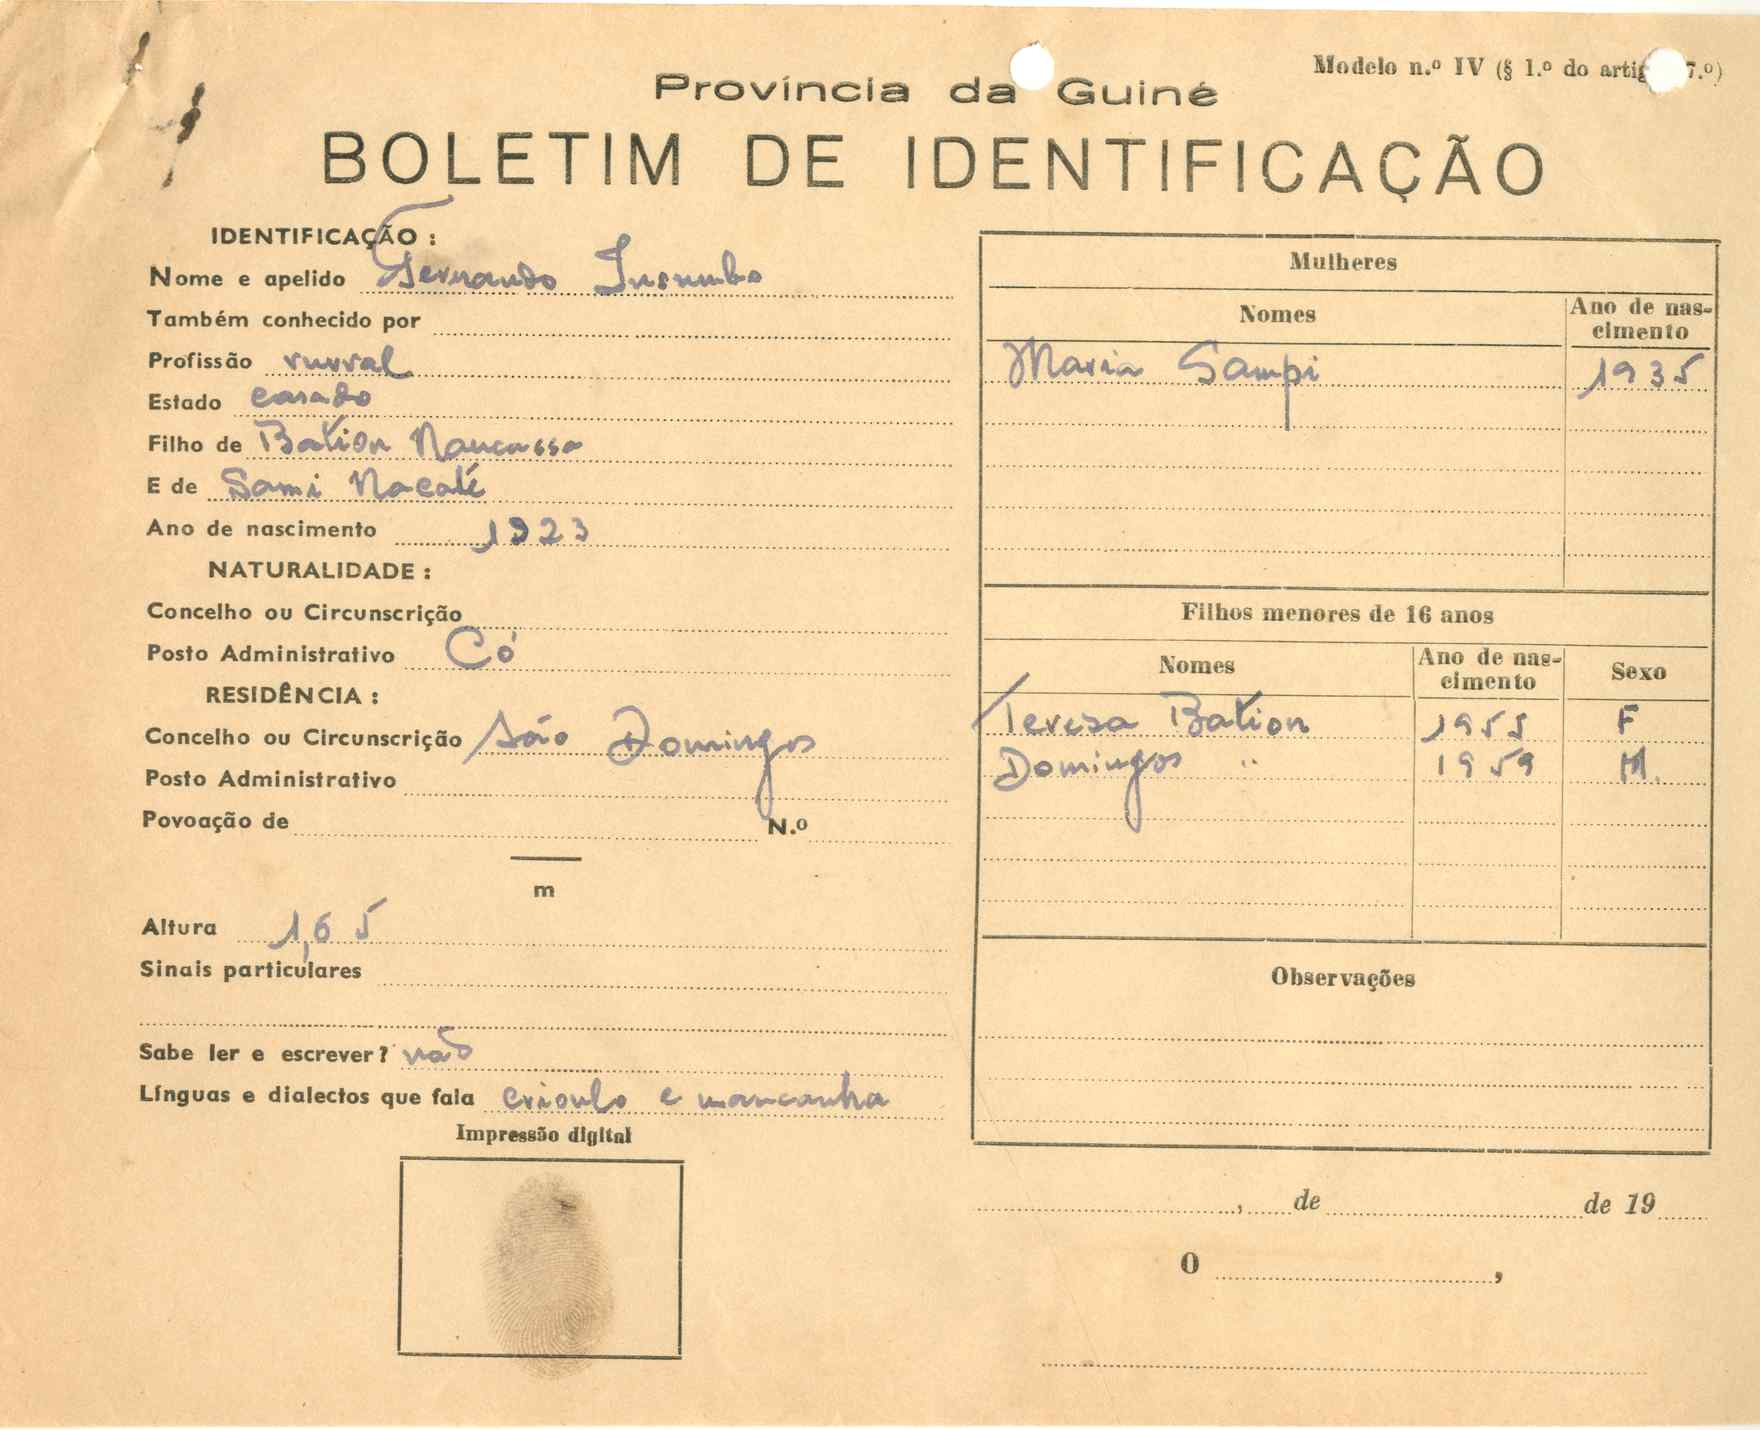 Modelo n.º IV (§ 1.º do artig 7.º)
Província da Guiné
BOLETIM DE IDENTIFICAÇÃO
IDENTIFICAÇÃO :
Nome e apelido Fernando Insumbo
Também conhecido por
Profissão rurral
Estado casado
Filho de Bation Naucassa
E de Sami Nacaté
Ano de nascimento 1923
NATURALIDADE :
Concelho ou Circunscrição
Posto Administrativo Có
RESIDÊNCIA :
Concelho ou Circunscrição São Domingos
Posto Administrativo
Povoação de N.º
m
Altura 1,65
Sinais particulares
Sabe ler e escrever? não
Línguas e dialectos que fala crioulo e mancanha
Impressão digital
Mulheres
Nomes Ano de nas-
cimento
Maria Sampi 1935
Filhos menores de 16 anos
Nomes Ano de nas-
cimento Sexo
Teresa Bation 1955 F
Domingos " 1959 M.
Observações
, de de 19
O ,